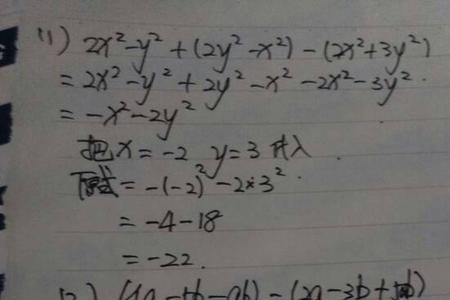 (1) 2x²-y²+(2y²-x²)-(2x²+3y²)
=2x²-y²+2y²-x²-2x²-3y².
=-x²-2y²
把x=-2 y=3代入.
原式=-(-2)²-2×3².
=-4-18
=-22.